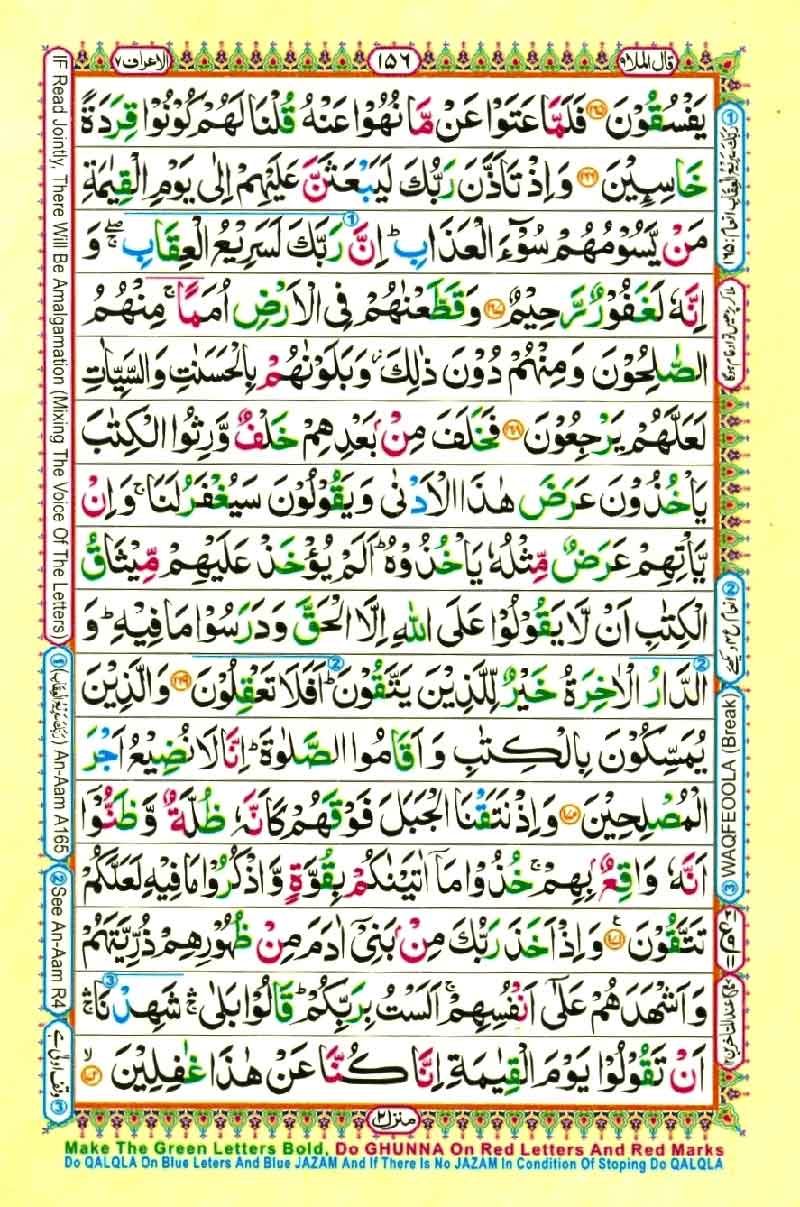 الاعراف ۷
۱۵۶
قال الملا ۹
يَفْسُقُوْنَ ۝۱۶۵ فَلَمَّا عَتَوْا عَنْ مَّا نُهُوْا عَنْهُ قُلْنَا لَهُمْ كُوْنُوْا قِرَدَةً
خَاسِـِٕيْنَ ۝۱۶۶ وَاِذْ تَاَذَّنَ رَبُّكَ لَيَبْعَثَنَّ عَلَيْهِمْ اِلٰى يَوْمِ الْقِيٰمَةِ
مَنْ يَّسُوْمُهُمْ سُوْٓءَ الْعَذَابِ ؕ اِنَّ رَبَّكَ لَسَرِيْعُ الْعِقَابِ ۚۖ وَ
اِنَّهٗ لَغَفُوْرٌ رَّحِيْمٌ ۝۱۶۷ وَقَطَّعْنٰهُمْ فِى الْاَرْضِ اُمَمًا ۚ مِنْهُمُ
الصّٰلِحُوْنَ وَمِنْهُمْ دُوْنَ ذٰلِكَ ؗ وَبَلَوْنٰهُمْ بِالْحَسَنٰتِ وَالسَّيِّاٰتِ
لَعَلَّهُمْ يَرْجِعُوْنَ ۝۱۶۸ فَخَلَفَ مِنْۢ بَعْدِهِمْ خَلْفٌ وَّرِثُوا الْكِتٰبَ
يَاْخُذُوْنَ عَرَضَ هٰذَا الْاَدْنٰى وَيَقُوْلُوْنَ سَيُغْفَرُ لَنَا ۚ وَاِنْ
يَّاْتِهِمْ عَرَضٌ مِّثْلُهٗ يَاْخُذُوْهُ ؕ اَلَمْ يُؤْخَذْ عَلَيْهِمْ مِّيْثَاقُ
الْكِتٰبِ اَنْ لَّا يَقُوْلُوْا عَلَى اللّٰهِ اِلَّا الْحَقَّ وَدَرَسُوْا مَا فِيْهِ ؕ وَ
الدَّارُ الْاٰخِرَةُ خَيْرٌ لِّلَّذِيْنَ يَتَّقُوْنَ ؕ اَفَلَا تَعْقِلُوْنَ ۝۱۶۹ وَالَّذِيْنَ
يُمَسِّكُوْنَ بِالْكِتٰبِ وَاَقَامُوا الصَّلٰوةَ ؕ اِنَّا لَا نُضِيْعُ اَجْرَ
الْمُصْلِحِيْنَ ۝۱۷۰ وَاِذْ نَتَقْنَا الْجَبَلَ فَوْقَهُمْ كَاَنَّهٗ ظُلَّةٌ وَّظَنُّوْٓا
اَنَّهٗ وَاقِعٌۢ بِهِمْ ۚ خُذُوْا مَآ اٰتَيْنٰكُمْ بِقُوَّةٍ وَّاذْكُرُوْا مَا فِيْهِ لَعَلَّكُمْ
تَتَّقُوْنَ ۝۱۷۱ وَاِذْ اَخَذَ رَبُّكَ مِنْۢ بَنِيْٓ اٰدَمَ مِنْ ظُهُوْرِهِمْ ذُرِّيَّتَهُمْ
وَاَشْهَدَهُمْ عَلٰٓى اَنْفُسِهِمْ ۚ اَلَسْتُ بِرَبِّكُمْ ؕ قَالُوْا بَلٰى ۛۚ شَهِدْنَا ۛۚ
اَنْ تَقُوْلُوْا يَوْمَ الْقِيٰمَةِ اِنَّا كُنَّا عَنْ هٰذَا غٰفِلِيْنَ ۝۱۷۲
منزل ۲
IF Read Jointly, There Will Be Amalgamation (Mixing The Voice Of The Letters)
① An-Aam A165
② See An-Aam R4
③ وقف اولی ہے
③ WAQFEOOLA (Break)
Make The Green Letters Bold, Do GHUNNA On Red Letters And Red Marks
Do QALQLA On Blue Leters And Blue JAZAM And If There Is No JAZAM In Condition Of Stoping Do QALQLA